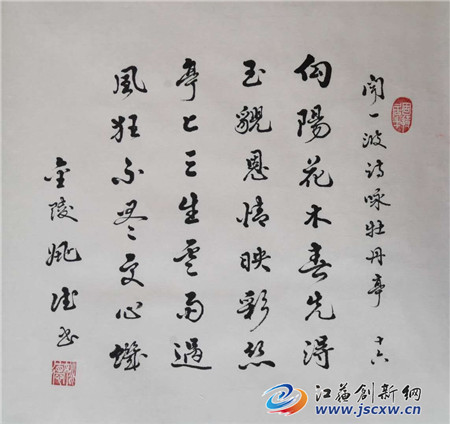 闻一波诗咏牡丹亭 十六
向陽花木春先得
玉貌恩情映彩丝
亭上三生雲雨過
風狂不交心
金陵姚书
江苏创新网
www.jscxw.cn